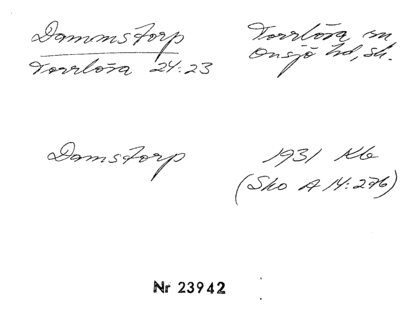 Dammstorp
Torrlösa 24:23
Torrlösa sn
Onsjö hd, sk.
Damstorp
1931 Kb
(Sko A 14:276)
Nr 23942